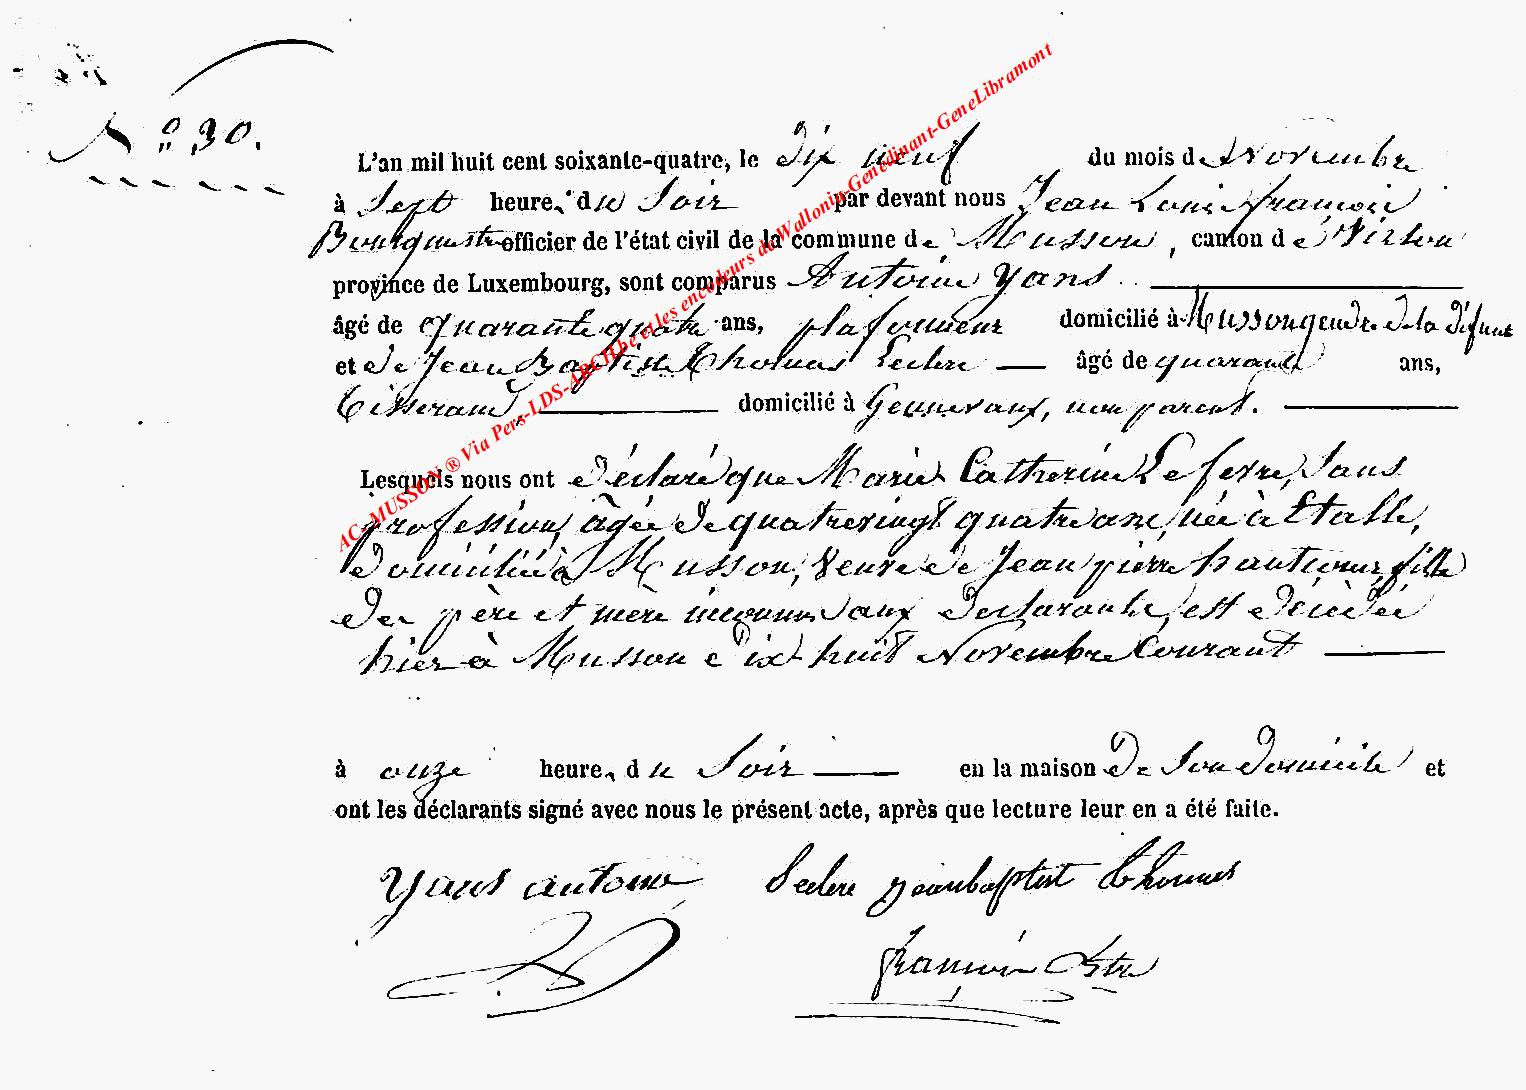 N° 30.
L'an mil huit cent soixante-quatre, le dix neuf du mois de Novembre
à Sept heures du Soir par devant nous Jean Louis François
Bourgmestre officier de l'état civil de la commune de Musson, canton de Virton
province de Luxembourg, sont comparus Antoine Yans
âgé de quarante quatre ans, plafonneur domicilié à Musson gendre de la défunte
et de Jean Baptiste Thomas Leclere âgé de quarante ans,
Tisserand, domicilié à Gennevaux, non parent.
Lesquels nous ont déclaré que Marie Catherine Lefevre, Sans
profession, âgée de quatrevingt quatre ans, née à Etalle,
domiciliée à Musson, Veuve de Jean pierre hauticœur, fille
de père et mère inconnus aux declarants, est décédée
hier à Musson dix huit Novembre Courant
à onze heures du Soir en la maison de Son domicile et
ont les déclarants signé avec nous le présent acte, après que lecture leur en a été faite.
Yans antoine Leclere jeanbaptist thomas
François Bstre
AC- MUSSON ® Via Pers-LDS-ARCH.be et les encodeurs de Wallonia-Genedinant-GeneLibramont